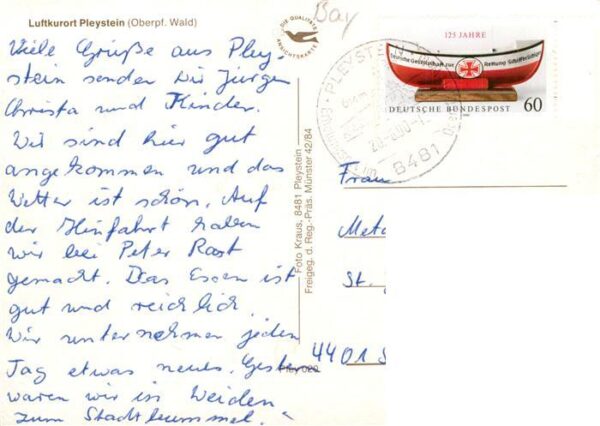 Luftkurort Pleystein (Oberpf. Wald)
DIE QUALITÄTS
ANSICHTSKARTE
Bay
Viele Grüße aus Pley-
stein senden Dir Jürgen
Christa und Kinder.
Wir sind hier gut
angekommen und das
Wetter ist schön. Auf
der Hinfahrt haben
wir bei Peter Rast
gemacht. Das Essen ist
gut und reichlich.
Wir unternehmen jeden
Tag etwas neues. Gestern
waren wir in Weiden
zum Stadtbummel.
Foto Kraus, 8481 Pleystein
Freigeg. d. Reg.-Präs. Münster 42/84
Pley 029
125 JAHRE
Deutsche Gesellschaft zur Rettung Schiffbrüchiger
DEUTSCHE BUNDESPOST
60
PLEYSTEIN
8481
Frau
Meta
St.
4401 S